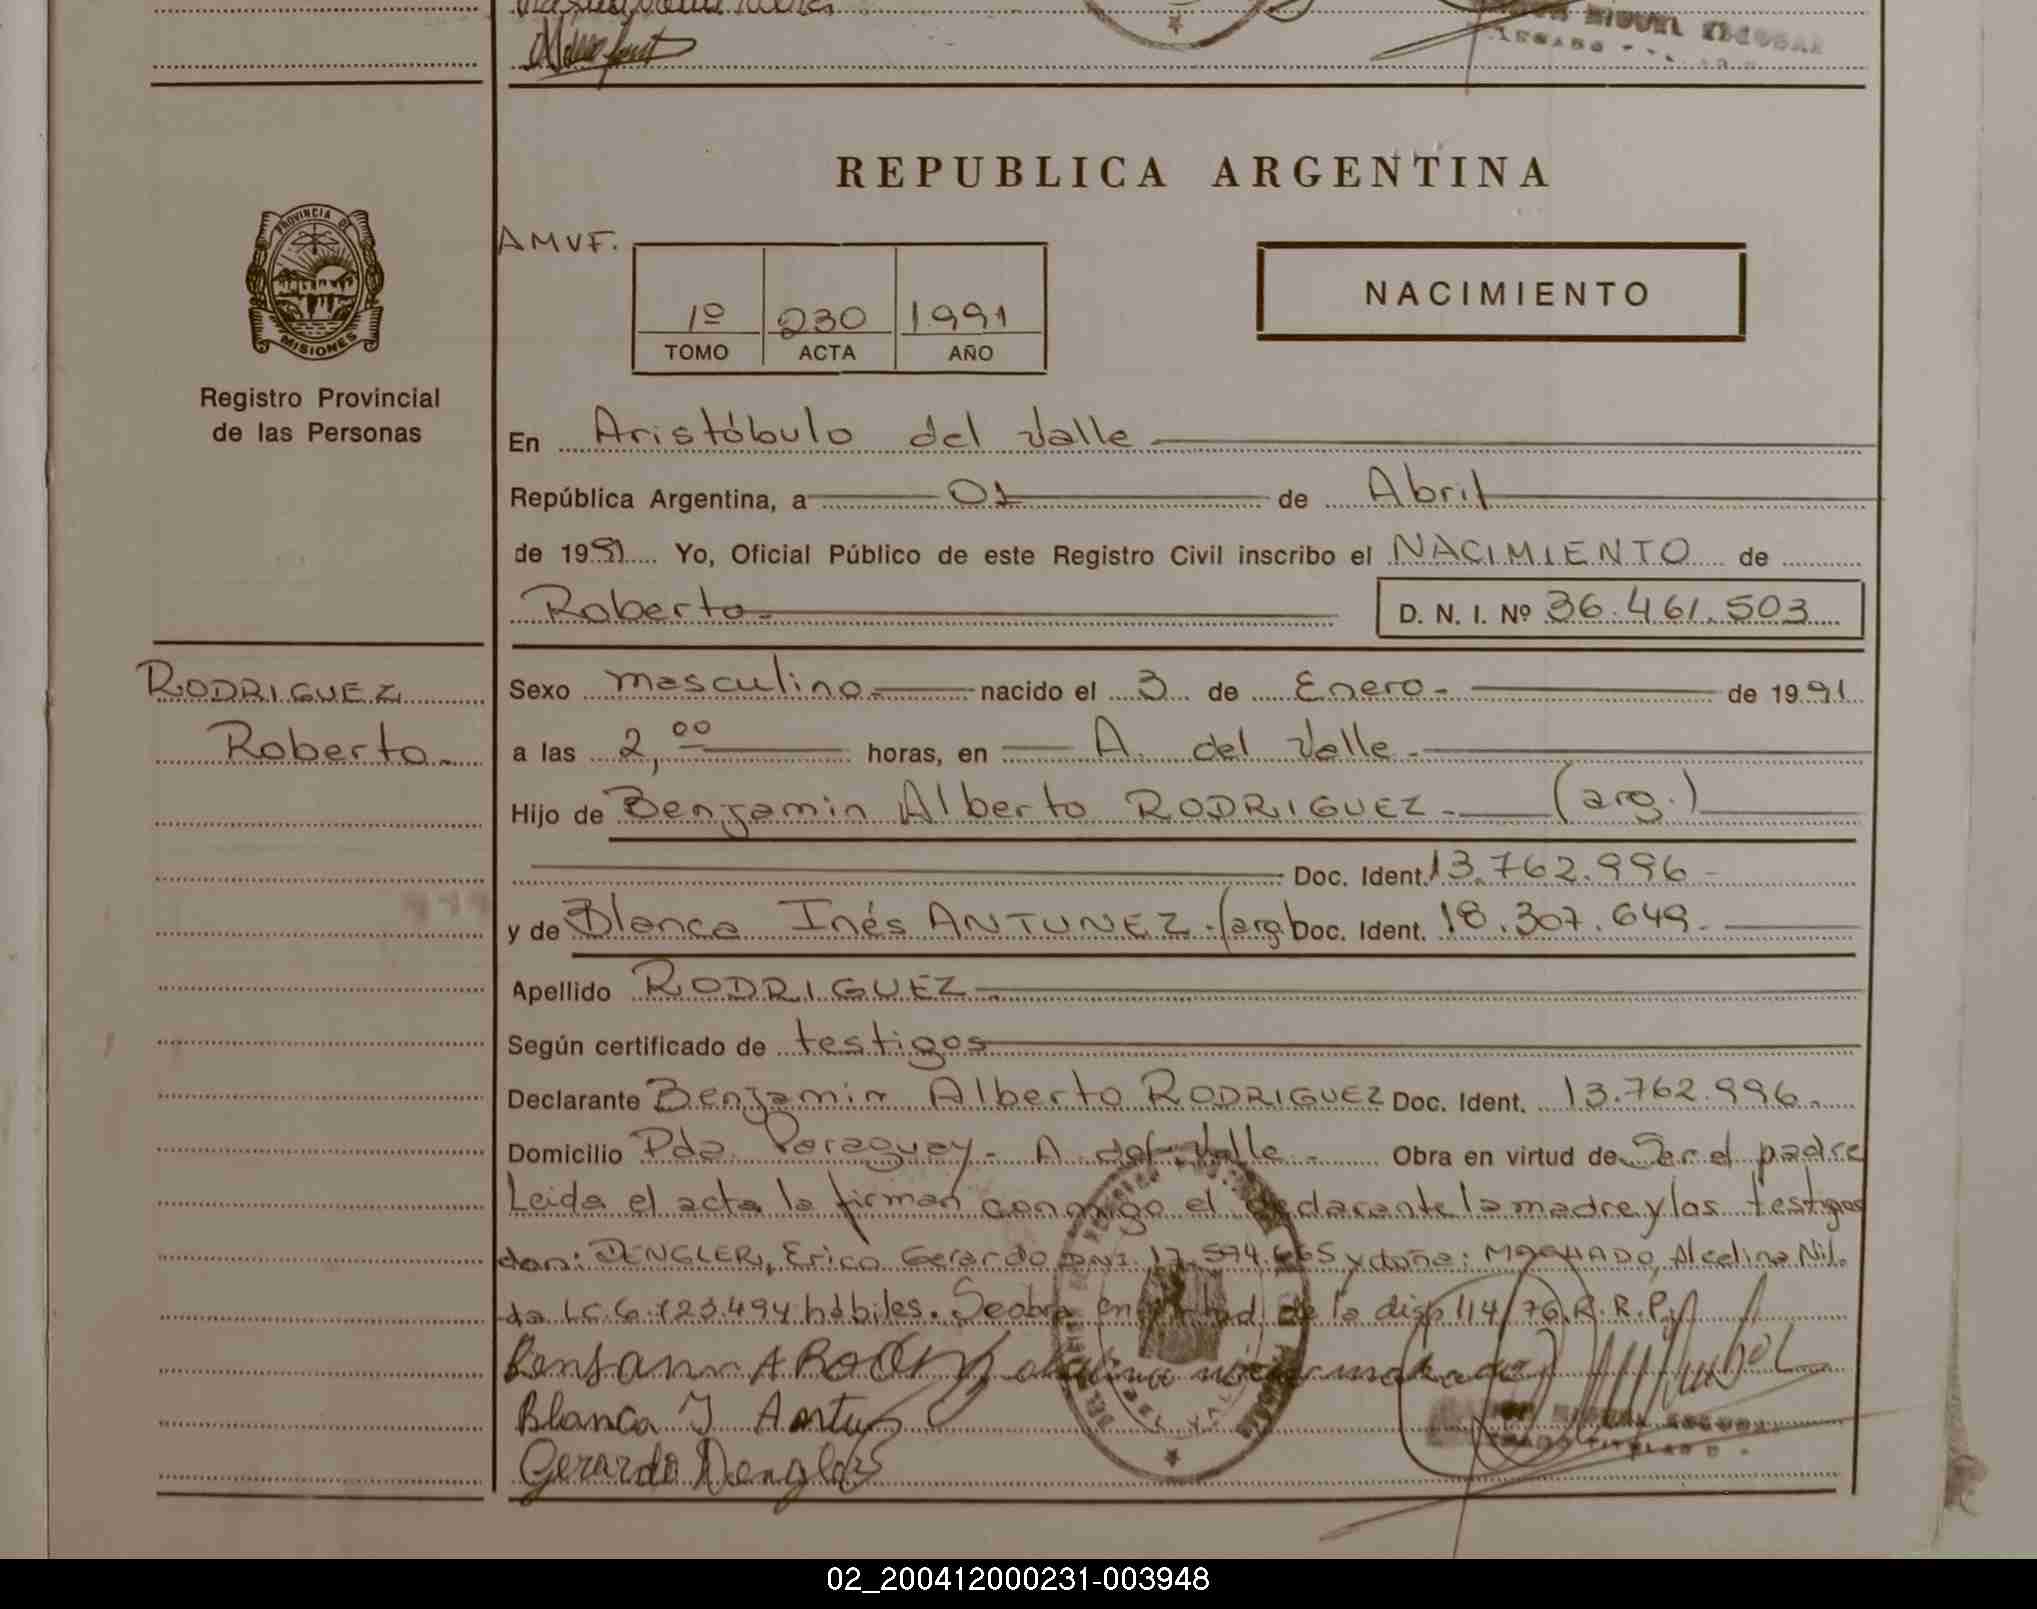 REPUBLICA ARGENTINA
PROVINCIA DE
MISIONES
Registro Provincial
de las Personas
AMVF.
1º 230 1991
TOMO ACTA AÑO
NACIMIENTO
En Aristóbulo del Valle
República Argentina, a 01 de Abril
de 1991 Yo, Oficial Público de este Registro Civil inscribo el NACIMIENTO de
Roberto D. N. I. Nº 36.461.503
RODRIGUEZ
Roberto
Sexo masculino nacido el 3 de Enero de 1991
a las 2,00 horas, en A. del Valle
Hijo de Benjamin Alberto RODRIGUEZ (arg.)
Doc. Ident. 13.762.996
y de Blanca Inés ANTUNEZ (arg) Doc. Ident. 18.307.649
Apellido RODRIGUEZ
Según certificado de testigos
Declarante Benjamin Alberto RODRIGUEZ Doc. Ident. 13.762.996
Domicilio Pda. Paraguay - A. del Valle Obra en virtud de Ser el padre
Leida el acta la firman conmigo el declarante la madre y los testigos
don: DENGLER, Erico Gerardo DNI. y doña: MACHADO, Alcelina Nil-
da LC. 6.123.494 hábiles. Se obra en virtud de la disp 114/76 R.R.P.
Blanca I
Gerardo
02_200412000231-003948